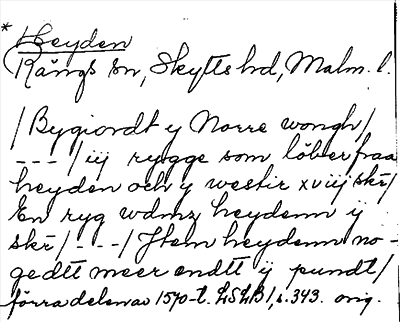 * Heyden
Rängs sn, Skytts hd, Malm. l.
/Bygiordt y Norre wongh/
---/iij rygge som löber fraa
heyden och y westir xviij skr/
En ryg wdmz heydenn ij
skr/---/Jtem heydenn no-
gedtt meer endtt ij pundt/
förra delen av 1570-t. LSLB1, s. 343. orig.